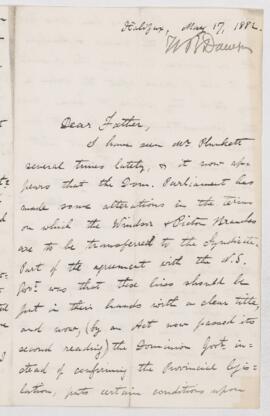 Halifax, May 17, 1882.
W B Dawson
Dear Father,
I have seen Mr Plunkett
several times lately, & it now ap-
pears that the Dom. Parliament has
made some alterations in the terms
on which the Windsor & Pictou Branches
are to be transferred to the Syndicate.
Part of the agreement with the N.S.
Govt. was that these lines should be
put in their hands with a clear title,
and now, (by an Act now passed its
second reading) the Dominion Govt. in-
stead of confirming the Provincial legis-
lation, puts certain conditions upon